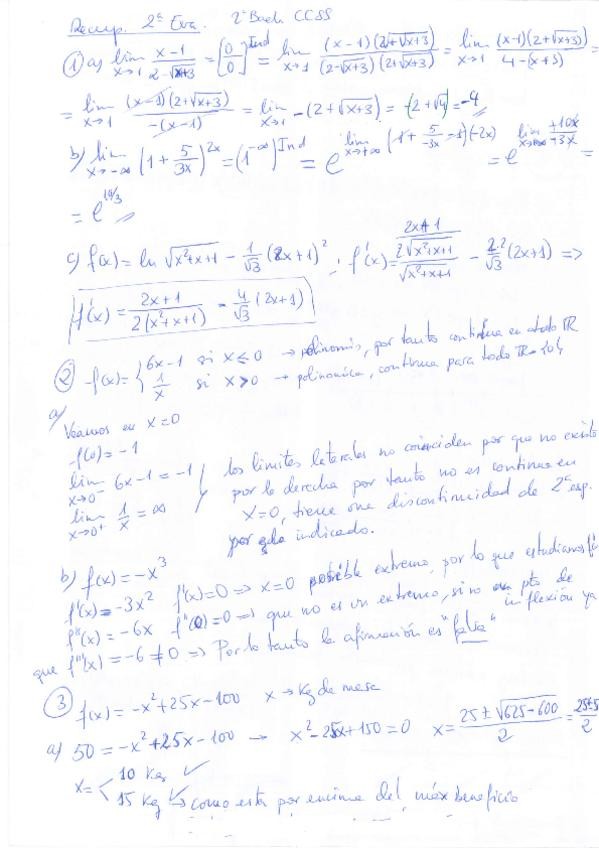 Recup. 2ª Eva. 2º Bach CCSS
① a) lim x→1 (x-1)/(2-√(x+3)) = [0/0] Ind = lim x→1 (x-1)(2+√(x+3))/((2-√(x+3))(2+√(x+3))) = lim x→1 (x-1)(2+√(x+3))/(4-(x+3)) =
= lim x→1 (x-1)(2+√(x+3))/(-(x-1)) = lim x→1 -(2+√(x+3)) = -(2+√4) = -4
b) lim x→-∞ (1 + 5/3x)^2x = (1^-∞) Ind = e^(lim x→+∞ (1 + 5/-3x - 1)(-2x)) = e^(lim x→+∞ +10x/+3x) =
= e^(10/3)
c) f(x) = ln √(x²+x+1) - 1/√3 (2x+1)² ; f'(x) = ((2x+1)/(2√(x²+x+1)))/√(x²+x+1) - 2·2/√3 (2x+1) =>
f'(x) = (2x+1)/(2(x²+x+1)) - 4/√3 (2x+1)
② f(x) = { 6x-1 si x≤0 → polinomio, por tanto continua en todo ℝ
1/x si x>0 → polinomica, continua para todo ℝ-{0}
a) Veamos en x=0
f(0) = -1
lim x→0⁻ 6x-1 = -1
lim x→0⁺ 1/x = ∞
Los limites laterales no coinciden por que no existe
por la derecha por tanto no es continua en
x=0, tiene una discontinuidad de 2ª esp.
por indicado.
b) f(x) = -x³
f'(x) = -3x² f'(x)=0 => x=0 posible extremo, por lo que estudiamos f''
f''(x) = -6x f''(0)=0 => que no es un extremo, si no pto de inflexión ya
que f'''(x) = -6 ≠ 0 => Por lo tanto la afirmación es "falsa"
③ f(x) = -x²+25x-100 x → Kg de masa
a) 50 = -x²+25x-100 → x²-25x+150=0 x = (25±√(625-600))/2 = (25±5)/2
x = < 10 Kgs ✓
15 Kg → como esta por encima del máx beneficio